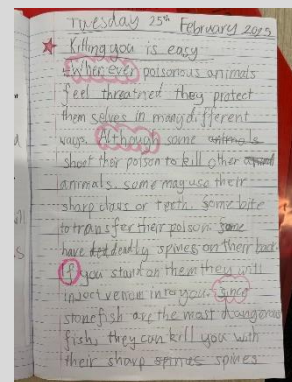 Tuesday 25th February 2025
Killing you is easy
Whenever poisonous animals
feel threatned they protect
them selves in many different
ways. Although some animals
shoot their poison to kill other
animals. some may use their
sharp claws or terth. Some bite
to transfer their poison. Some
have deadly spines on their back.
If you stand on them they will
inject venom into you. Since
stonefish are the most dangerous
fish, they can kill you with
their sharp spines spines